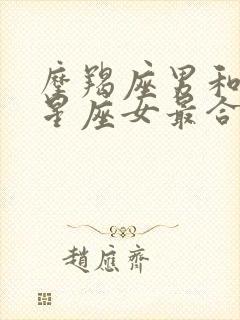 摩羯座男和
星座女最合
趙應齊